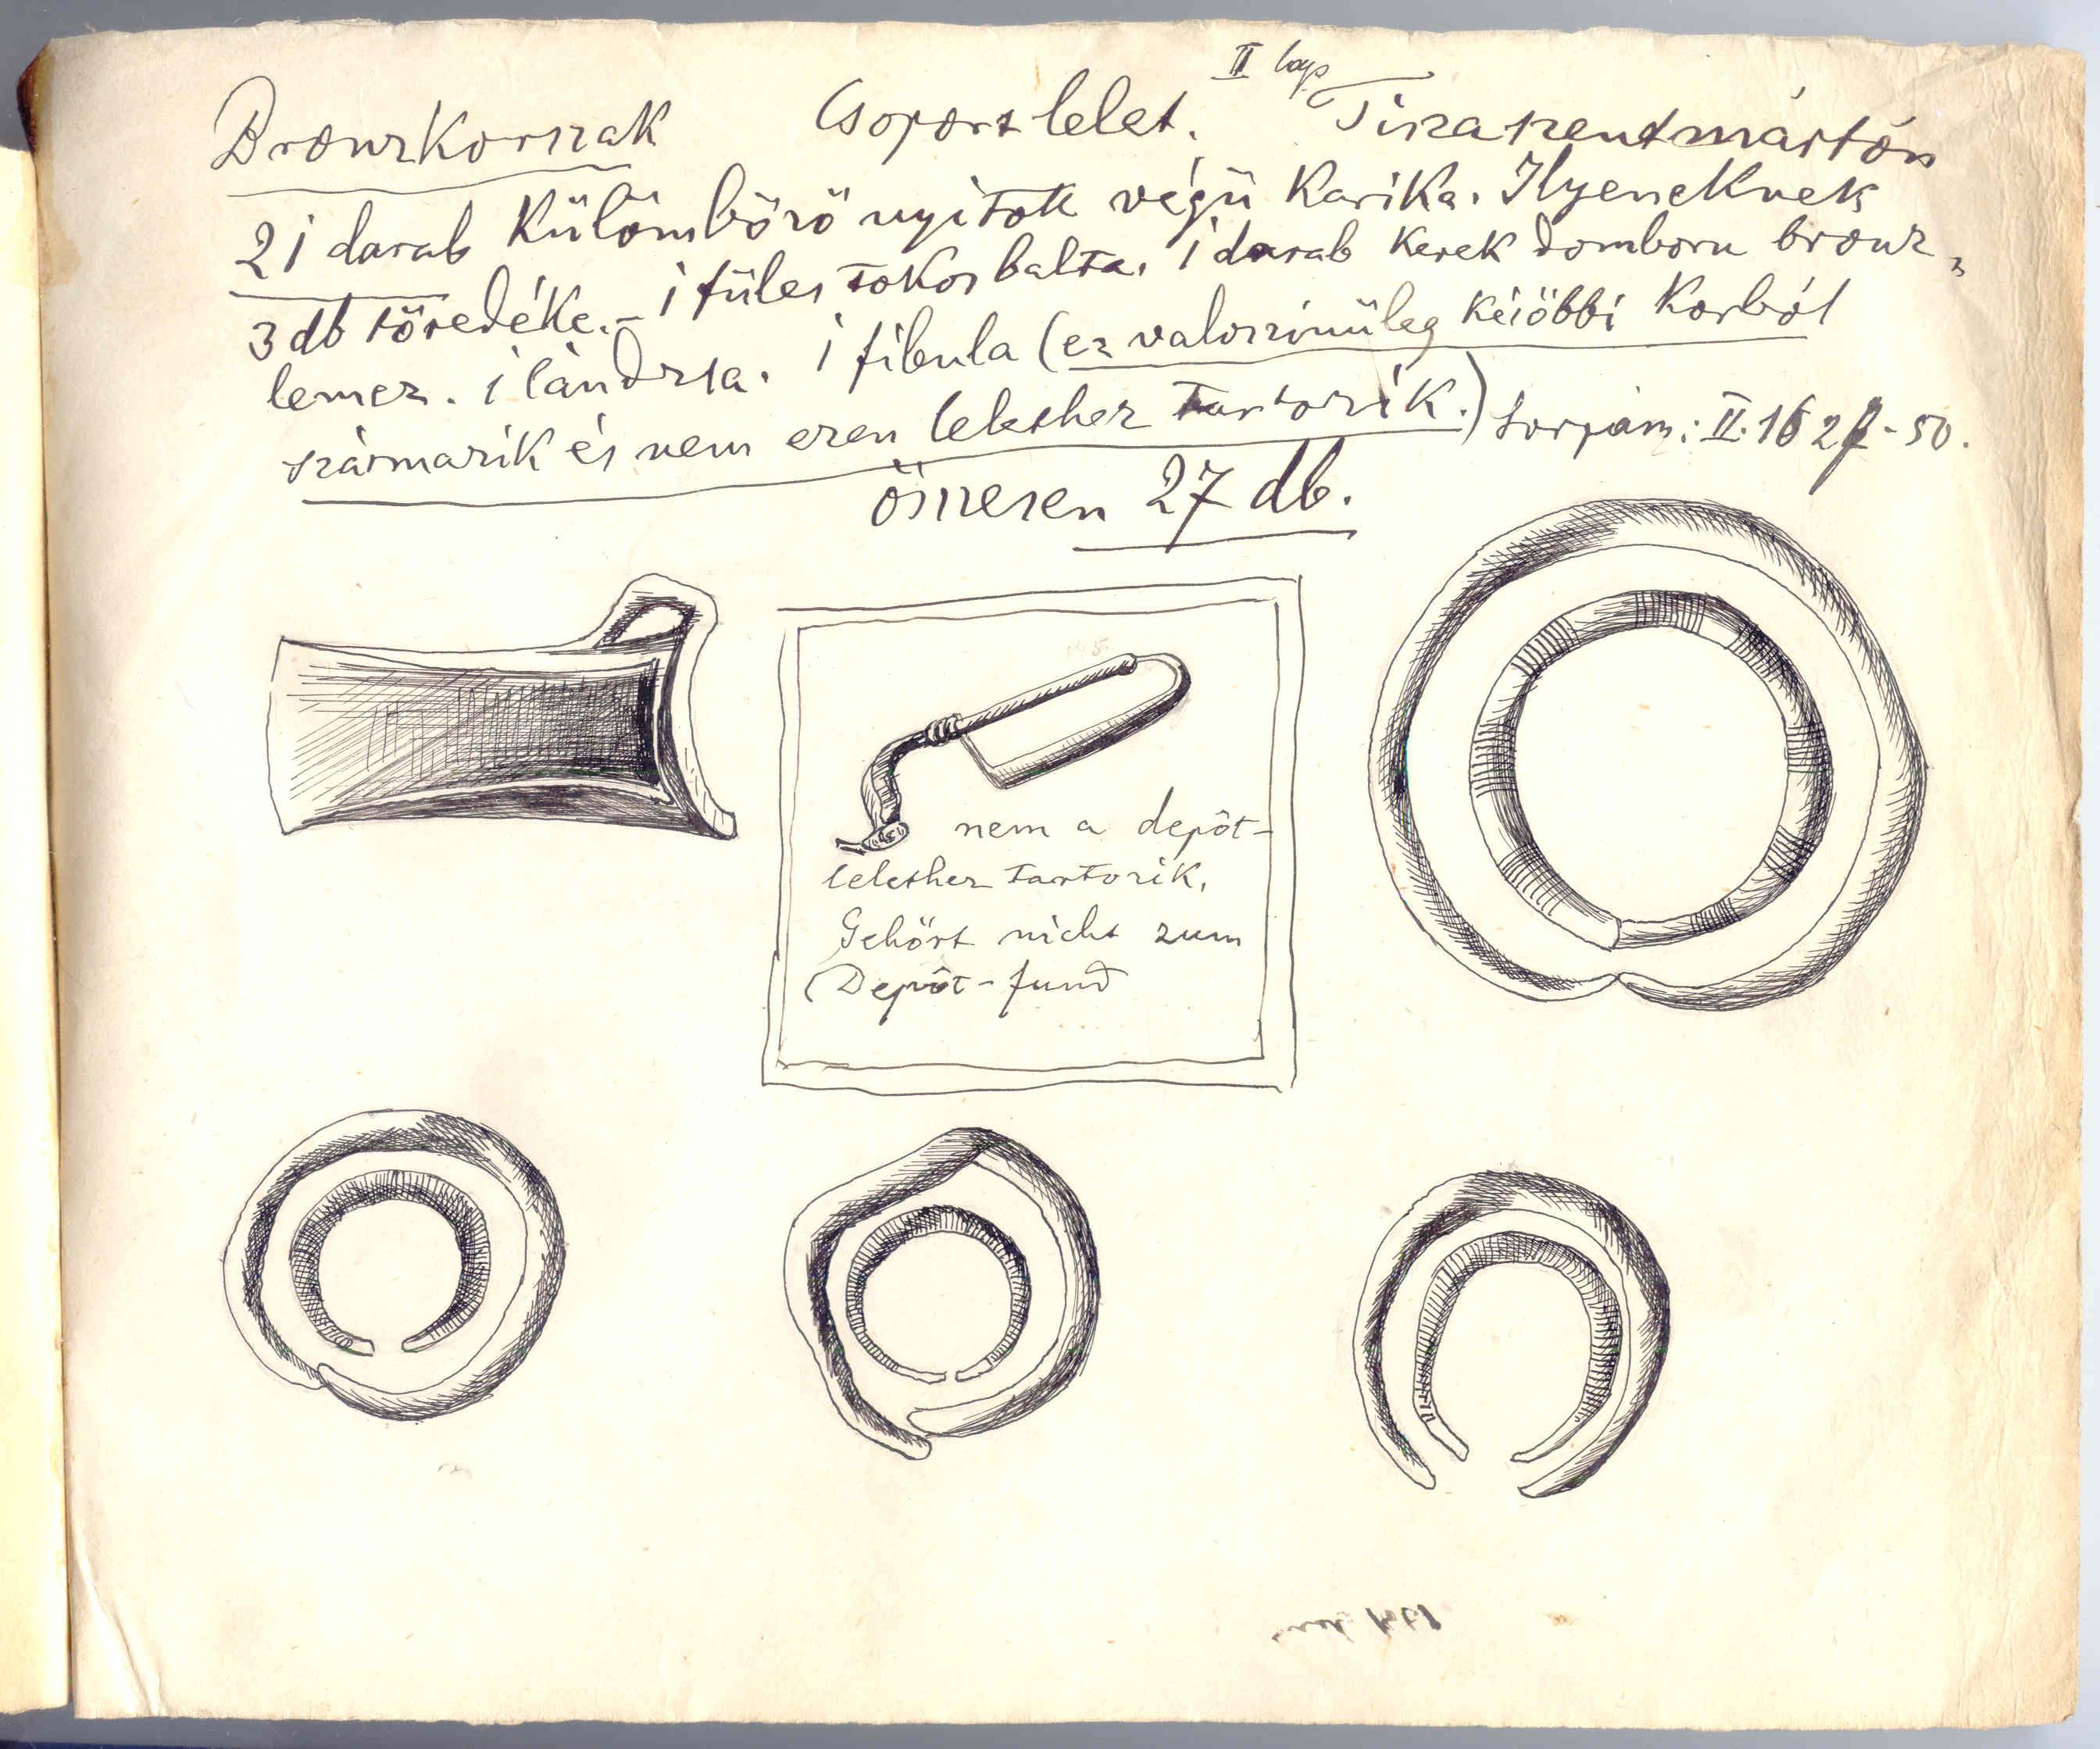 II lap
Bronzkorszak Csoport lelet. Tiszaszentmárton
21 darab Külömböző nyitott végü Karika. Ilyeneknek
3 db töredéke. – 1 füles tokos balta. 1 darab kerek domboru bronz„
lemez. 1 lándzsa. 1 fibula (ez valoszinüleg késöbbi Korból
származik és nem ezen lelethez tartozik.) Sorszám: II. 1627-50.
összesen 27 db.
nem a depôt-
lelethez tartozik.
Gehört nicht zum
Depôt-fund